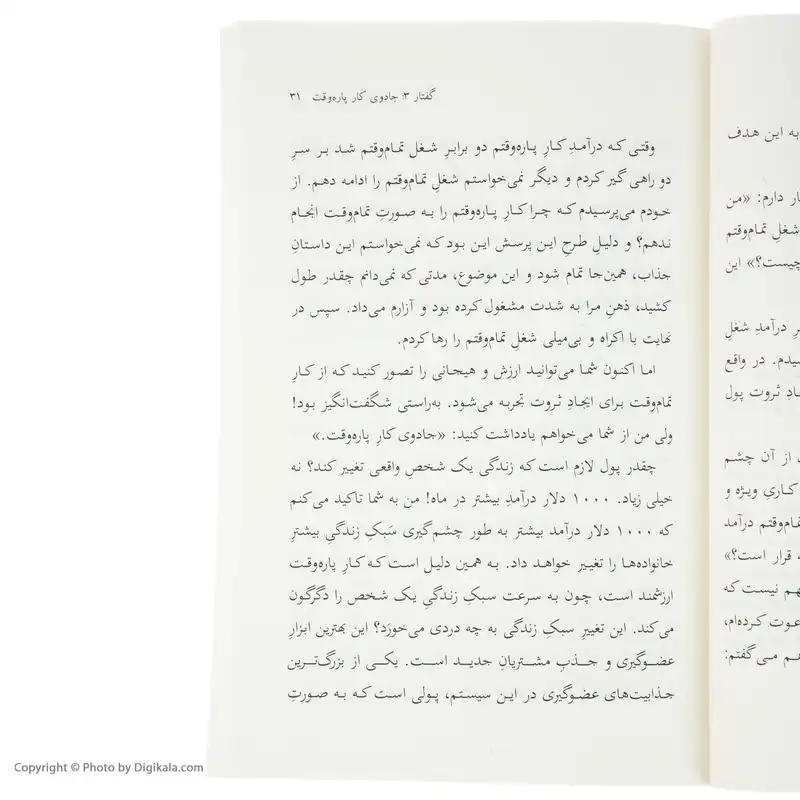 به این هدف
ار دارم: «من
شغلِ تمام‌وقتم
چیست؟» این
رِ درآمدِ شغلِ
سیدم. در واقع
ادِ ثروت پول
از آن چشم
کاریِ ویژه و
تمام‌وقتم درآمد
قرار است؟»
هم نیست که
عوت کرده‌ام،
هم می‌گفتم:
گفتار ۳: جادوی کار پاره‌وقت ۳۱
وقتی که درآمدِ کارِ پاره‌وقتم دو برابرِ شغل تمام‌وقتم شد بر سرِ
دو راهی گیر کردم و دیگر نمی‌خواستم شغلِ تمام‌وقتم را ادامه دهم. از
خودم می‌پرسیدم که چرا کارِ پاره‌وقتم را به صورتِ تمام‌وقت انجام
ندهم؟ و دلیلِ طرحِ این پرسش این بود که نمی‌خواستم این داستانِ
جذاب، همین‌جا تمام شود و این موضوع، مدتی که نمی‌دانم چقدر طول
کشید، ذهنِ مرا به شدت مشغول کرده بود و آزارم می‌داد. سپس در
نهایت با اکراه و بی‌میلی شغلِ تمام‌وقتم را رها کردم.
اما اکنون شما می‌توانید ارزش و هیجانی را تصور کنید که از کارِ
تمام‌وقت برای ایجادِ ثروت تجربه می‌شود. به‌راستی شگفت‌انگیز بود!
ولی من از شما می‌خواهم یادداشت کنید: «جادوی کارِ پاره‌وقت.»
چقدر پول لازم است که زندگی یک شخصِ واقعی تغییر کند؟ نه
خیلی زیاد. ۱۰۰۰ دلار درآمدِ بیشتر در ماه! من به شما تاکید می‌کنم
که ۱۰۰۰ دلار درآمد بیشتر به طور چشم‌گیری سَبکِ زندگیِ بیشترِ
خانواده‌ها را تغییر خواهد داد. به همین دلیل است که کارِ پاره‌وقت
ارزشمند است، چون به سرعت سبکِ زندگیِ یک شخص را دگرگون
می‌کند. این تغییرِ سبکِ زندگی به چه دردی می‌خورَد؟ این بهترین ابزارِ
عضوگیری و جذبِ مشتریانِ جدید است. یکی از بزرگ‌ترین
جذابیت‌های عضوگیری در این سیستم، پولی است که به صورتِ
Copyright © Photo by Digikala.com